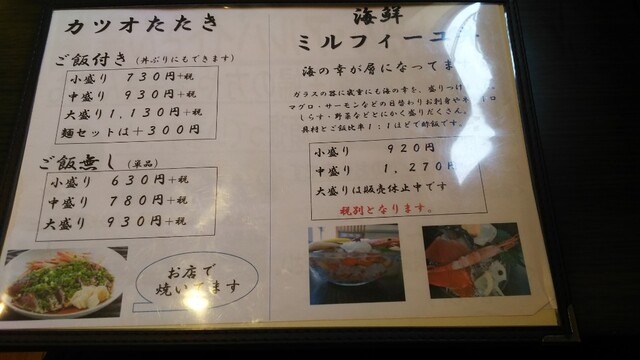 カツオたたき
ご飯付き (丼ぶりにもできます)
小盛り 730円+税
中盛り 930円+税
大盛り 1,130円+税
麺セットは+300円
ご飯無し (単品)
小盛り 630円+税
中盛り 780円+税
大盛り 930円+税
お店で
焼いてます
海鮮
ミルフィーユ
海の幸が層になってます
ガラスの器に幾重にも海の幸を、盛りつけ
マグロ・サーモンなどの日替わりお刺身や
しらす・野菜などとにかく盛りだくさん。
具材とご飯比率1:1ほどで酢飯です。
小盛り 920円
中盛り 1,270円
大盛りは販売休止中です
税別となります。